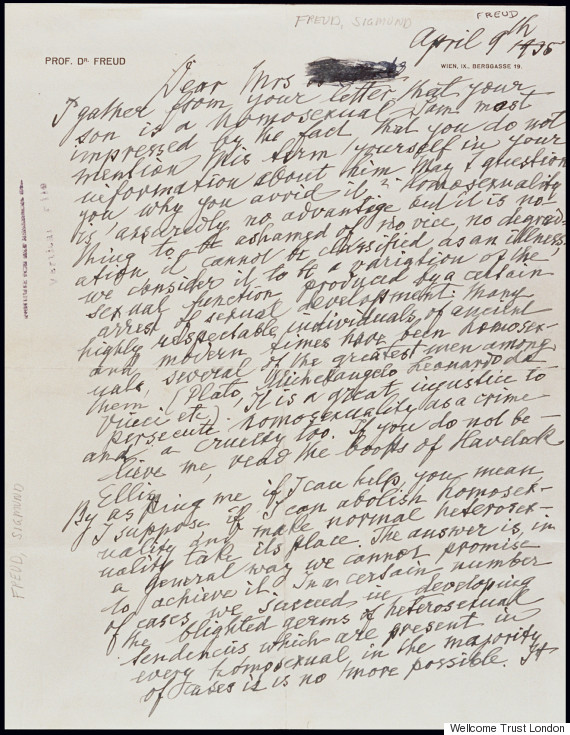 FREUD, SIGMUND
FREUD
April 9th 1935
PROF. DR. FREUD
WIEN, IX., BERGGASSE 19.
Dear Mrs
I gather from your letter that your
son is a homosexual. I am most
impressed by the fact, that you do not
mention this term yourself in your
information about him. May I question
you why you avoid it? Homosexuality
is assuredly no advantage but it is no-
thing to be ashamed of, no vice, no degrad-
ation, it cannot be classified as an illness;
we consider it to be a variation of the
sexual function produced by a certain
arrest of sexual development. Many
highly respectable individuals of ancient
and modern times have been homosex-
uals, several of the greatest men among
them (Plato, Michelangelo, Leonardo da
Vinci etc). It is a great injustice to
persecute homosexuality as a crime
and a cruelty too. If you do not be-
lieve me, read the books of Havelock
Ellis.
By asking me if I can help, you mean
I suppose if I can abolish homosex-
uality and make normal heterosex-
uality take its place. The answer is, in
a general way we cannot promise
to achieve it. In a certain number
of cases we succeed in developing
the blighted germs of heterosexual
tendencies which are present in
every homosexual, in the majority
of cases it is no more possible. It
FREUD, SIGMUND
Wellcome Trust London